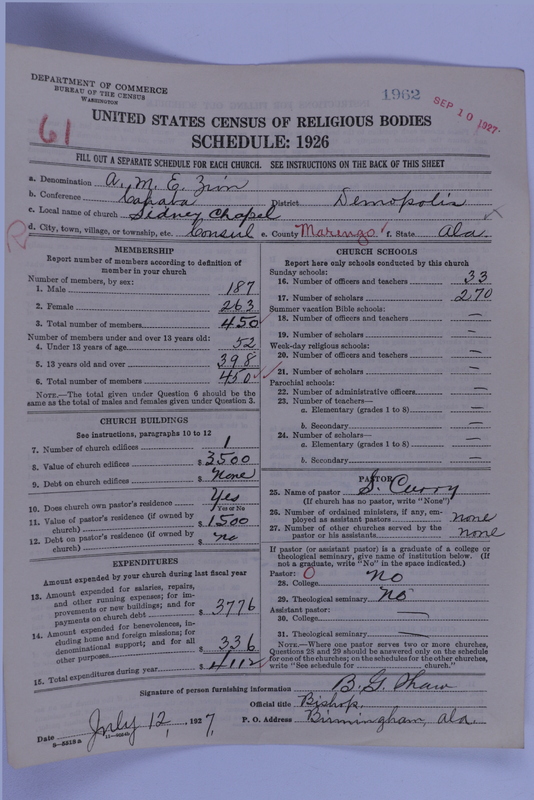 DEPARTMENT OF COMMERCE
BUREAU OF THE CENSUS
WASHINGTON
1962
SEP 10 1927
61
UNITED STATES CENSUS OF RELIGIOUS BODIES
SCHEDULE: 1926
FILL OUT A SEPARATE SCHEDULE FOR EACH CHURCH. SEE INSTRUCTIONS ON THE BACK OF THIS SHEET
a. Denomination A. M. E. Zion
b. Conference Cahaba District Demopolis
c. Local name of church Sidney Chapel
d. City, town, village, or township, etc. Consul e. County Marengo f. State Ala.
MEMBERSHIP
Report number of members according to definition of member in your church
Number of members, by sex:
1. Male 187
2. Female 263
3. Total number of members 450
Number of members under and over 13 years old:
4. Under 13 years of age 52
5. 13 years old and over 398
6. Total number of members 450
NOTE.—The total given under Question 6 should be the same as the total of males and females given under Question 3.
CHURCH BUILDINGS
See instructions, paragraphs 10 to 12
7. Number of church edifices 1
8. Value of church edifices $ 3500
9. Debt on church edifices $ None
10. Does church own pastor's residence? Yes
Yes or No
11. Value of pastor's residence (if owned by church) $ 1500
12. Debt on pastor's residence (if owned by church) $ no
EXPENDITURES
Amount expended by your church during last fiscal year
13. Amount expended for salaries, repairs, and other running expenses; for improvements or new buildings; and for payments on church debt $ 3776
14. Amount expended for benevolences, including home and foreign missions; for denominational support; and for all other purposes $ 336
15. Total expenditures during year $ 4112
CHURCH SCHOOLS
Report here only schools conducted by this church
Sunday schools:
16. Number of officers and teachers 33
17. Number of scholars 270
Summer vacation Bible schools:
18. Number of officers and teachers —
19. Number of scholars —
Week-day religious schools:
20. Number of officers and teachers —
21. Number of scholars —
Parochial schools:
22. Number of administrative officers —
23. Number of teachers—
a. Elementary (grades 1 to 8) —
b. Secondary —
24. Number of scholars—
a. Elementary (grades 1 to 8) —
b. Secondary —
PASTOR
25. Name of pastor S. Curry
(If church has no pastor, write "None")
26. Number of ordained ministers, if any, employed as assistant pastors none
27. Number of other churches served by the pastor or his assistants none
If pastor (or assistant pastor) is a graduate of a college or theological seminary, give name of institution below. (If not a graduate, write "No" in the space indicated.)
Pastor: 0
28. College No
29. Theological seminary No
Assistant pastor:
30. College —
31. Theological seminary —
NOTE.—Where one pastor serves two or more churches, Questions 28 and 29 should be answered only on the schedule for one of the churches; on the schedules for the other churches, write "See schedule for church."
Signature of person furnishing information B. G. Shaw
Official title Bishop.
Date July 12, 1927, P. O. Address Birmingham, Ala.